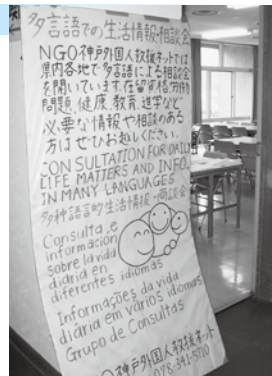 多言語での生活情報・相談会
NGO神戸外国人救援ネットでは
県内各地で多言語による相談会
を開いています。在留資格、労働
問題、健康、教育、進学など
必要な情報や相談のある
方はぜひお越しください。
CONSULTATION FOR DAILY
LIFE MATTERS AND INFO.
IN MANY LANGUAGES
多种语言的生活情报・商谈会
Consulta e
información
sobre la vida
diaria en
diferentes idiomas
Informações da vida
diária em vários idiomas
Grupo de Consultas
GO神戸外国人救援ネット